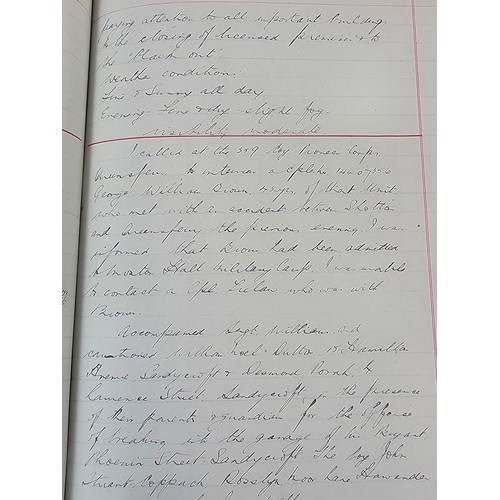 paying attention to all important building.
to the closing of licensed premises & to
the "Black out".
Weather conditions:
Fine & Sunny all day
Evening - Fine & dry - slight fog.
visibility moderate.
I called at the 319 Coy Pioneer Corps.
Queensferry to interview a
George William Brown, of that Unit
who met with an accident between Shotton
and Queensferry the previous evening. I was
informed that Brown had been admitted
to Hall Military Camp. I was unable
to contact a Cpl. who was with
Brown.
Accompanied Sergt. Williams and
cautioned William Dutton 15, Hamilton
Avenue, Sandycroft & Desmond
Lawrence Street, Sandycroft, in the presence
of their parents & guardian for the offence
of breaking into the garage of Mr Bryant
Phoenix Street, Sandycroft. The boy John
Stuart Coppack Rosslyn Moor Lane, Hawarden